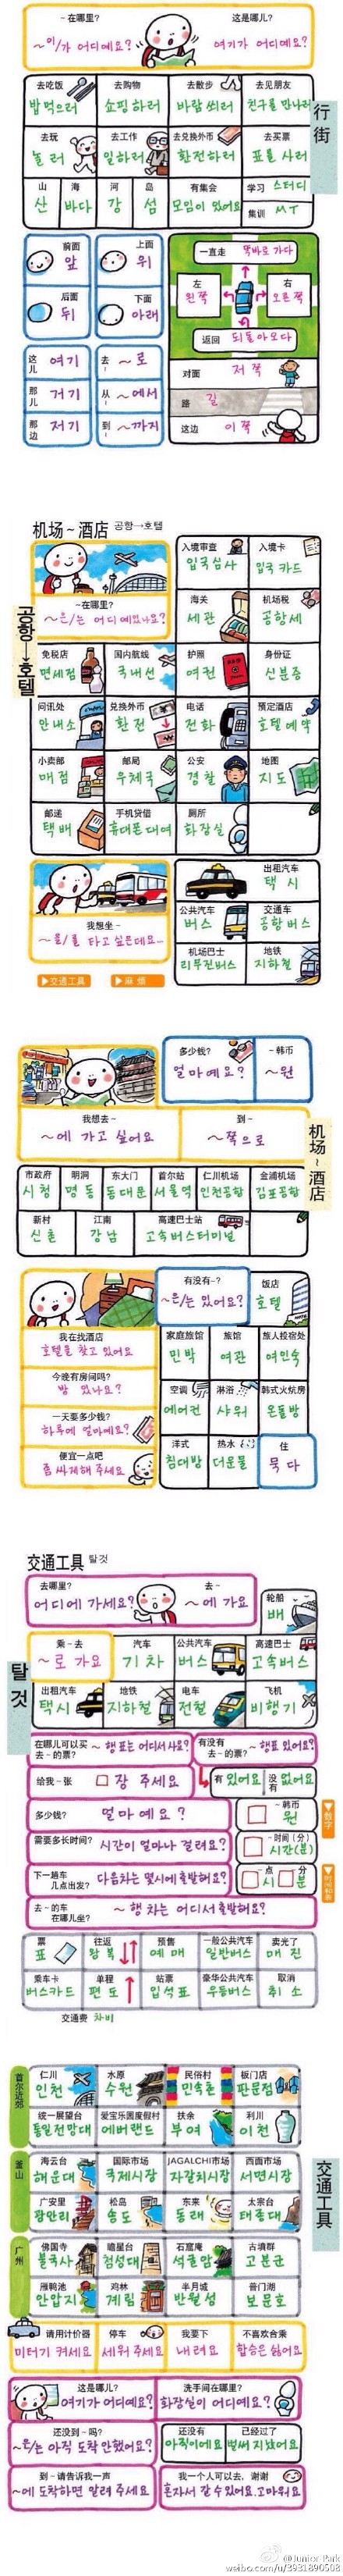 -在哪里?
~이/가 어디예요?
这是哪儿?
여기가 어디예요?
行街
去吃饭
밥 먹으러
去购物
쇼핑하러
去散步
바람 쐬러
去见朋友
친구를 만나러
去玩
놀러
去工作
일하러
去兑换外币
환전하러
去买票
표를 사러
山
산
海
바다
河
강
岛
섬
有集会
모임이 있어요
学习 스터디
集训 MT
前面
앞
上面
위
后面
뒤
下面
아래
一直走 똑바로 가다
左
왼쪽
右
오른쪽
返回 되돌아오다
对面 저쪽
路 길
这边 이쪽
这儿 여기
那儿 거기
那边 저기
去- ~로
从- ~에서
到- ~까지
机场~酒店 공항→호텔
공항→호텔
-在哪里?
~은/는 어디예요?
入境审查
입국심사
入境卡
입국카드
海关
세관
机场税
공항세
免税店
면세점
国内航线
국내선
护照
여권
身份证
신분증
问讯处
안내소
兑换外币
환전
电话
전화
预定酒店
호텔 예약
小卖部
매점
邮局
우체국
公安
경찰
地图
지도
邮递
택배
手机贷借
휴대폰대여
厕所
화장실
我想坐-
~을/를 타고 싶은데요...
▶交通工具
▶麻烦
出租汽车
택시
公共汽车
버스
交通车
공항버스
机场巴士
리무진버스
地铁
지하철
多少钱?
얼마예요?
-韩币
~원
我想去-
~에 가고 싶어요
到-
~쪽으로
机场~酒店
市政府
시청
明洞
명동
东大门
동대문
首尔站
서울역
仁川机场
인천공항
金浦机场
김포공항
新村
신촌
江南
강남
高速巴士站
고속버스터미널
有没有-?
~은/는 있어요?
饭店
호텔
我在找酒店
호텔을 찾고 있어요
今晚有房间吗?
방 있나요?
一天要多少钱?
하루에 얼마예요?
便宜一点吧
좀 싸게해 주세요
家庭旅馆
민박
旅馆
여관
旅人投宿处
여인숙
空调
에어컨
淋浴
샤워
韩式火炕房
온돌방
洋式
침대방
热水
더운물
住
묵다
交通工具 탈것
탈것
去哪里?
어디에 가세요?
去-
~에 가요
轮船
배
乘-去
~로 가요
汽车
기차
公共汽车
버스
高速巴士
고속버스
出租汽车
택시
地铁
지하철
电车
전철
飞机
비행기
在哪儿可以买去-的票? ~행표는 어디서 사요?
有没有去-的票? ~행표 있어요?
给我-张 □장 주세요
有 있어요
没有 없어요
多少钱? 얼마예요?
-韩币
원
▶数字
需要多长时间? 시간이 얼마나 걸려요?
-时间(分)
시간(분)
下一趟车几点出发? 다음차는 몇시에 출발해요?
-点 -分
시 분
▶时间和表
去-的车在哪儿坐? ~행 차는 어디서 출발해요?
票
표
往返
왕복
预售
예매
一般公共汽车
일반버스
卖光了
매진
乘车卡
버스카드
单程
편도
站票
입석표
豪华公共汽车
우등버스
取消
취소
交通费 차비
首尔近郊
仁川
인천
水原
수원
民俗村
민속촌
板门店
판문점
统一展望台
통일전망대
爱宝乐园度假村
에버랜드
扶余
부여
利川
이천
交通工具
釜山
海云台
해운대
国际市场
국제시장
JAGALCHI市场
자갈치시장
西面市场
서면시장
广安里
광안리
松岛
송도
东来
동래
太宗台
태종대
广州
佛国寺
불국사
瞻星台
첨성대
石窟庵
석굴암
古墳群
고분군
雁鸭池
안압지
鸡林
계림
半月城
반월성
普门湖
보문호
请用计价器
미터기 켜세요
停车
세워 주세요
我要下
내려요
不喜欢合乘
합승은 싫어요
这是哪儿?
여기가 어디예요?
洗手间在哪里?
화장실이 어디예요?
还没到-吗?
~은/는 아직 도착 안했어요?
还没有
아직이에요
已经过了
벌써 지났어요
到-请告诉我一声
~에 도착하면 알려 주세요
我一个人可以去，谢谢
혼자서 갈 수 있어요. 고마워요
@Junior_Park
weibo.com/u/3931890508